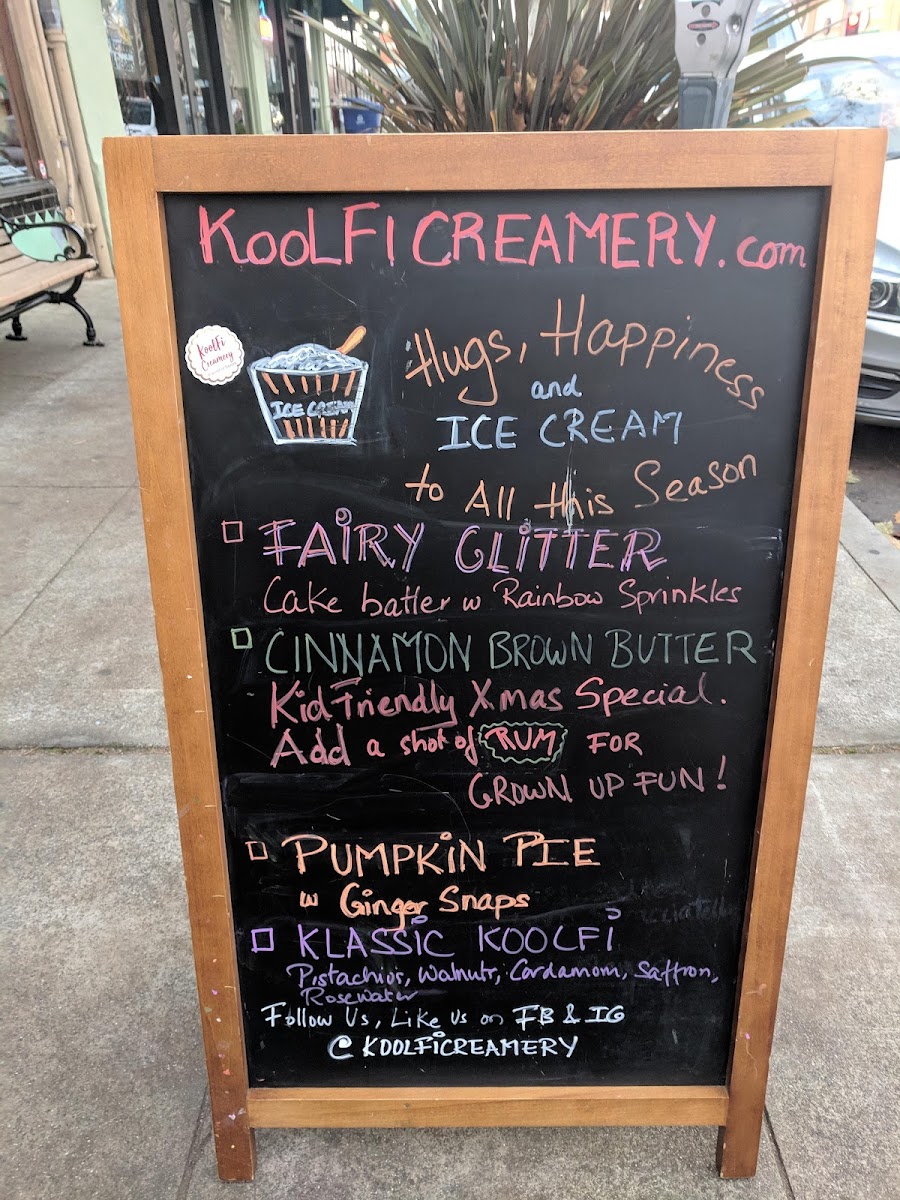 KOOLFICREAMERY.com
KoolFi
Creamery
ICE CREAM
Hugs, Happiness
and
ICE CREAM
to All this Season
FAiRY GLiTTER
Cake batter w Rainbow Sprinkles
CINNAMON BROWN BUTTER
Kid Friendly Xmas Special.
Add a shot of RUM FOR
GROWN UP FUN!
PUMPKiN PIE
w Ginger Snaps
KLASSiC KOOLFi
Pistachios, Walnuts, Cardamom, Saffron,
Rosewater
Follow Us, Like Us on FB & IG
@KOOLFiCREAMERY